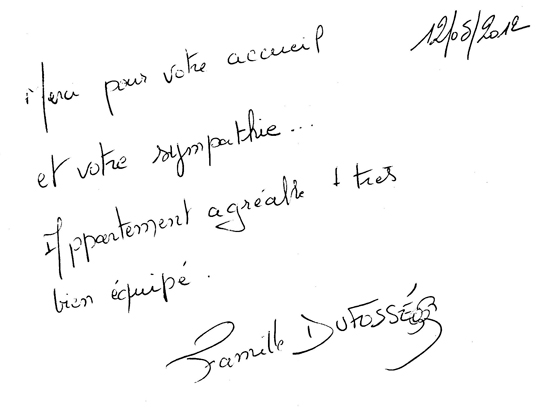 12/08/2012
Merci pour votre accueil
et votre sympathie...
Appartement agréable & très
bien équipé.
Famille DUFOSSÉ